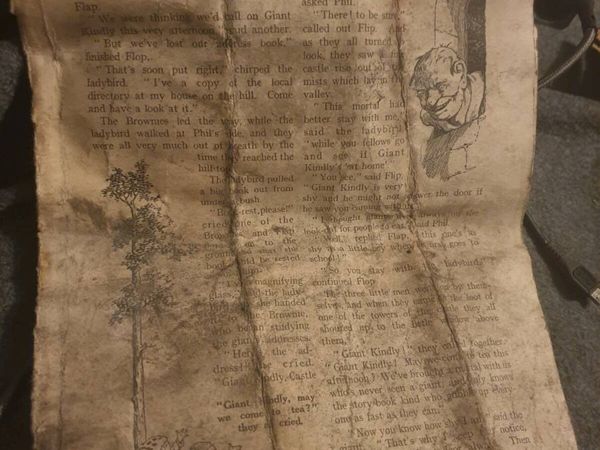 Flap.
"We were thinking we'd call on Giant
Kindly this very afternoon," said another.
"But we've lost our address book,"
finished Flop.
"That's soon put right," chirped the
ladybird. "I've a copy of the local
directory at my house on the hill. Come
and have a look at it."
The Brownies led the way, while the
ladybird walked at Phil's side, and they
were all very much out of breath by the
time they reached the
hill-top.
The ladybird pulled
a big book out from
under a bush.
cried one of the
Brownies and Flop
to the
be rested
magnifying
glass, said the lady-
she handed
Brownie,
who began studying
the giant addresses.
the ad-
dress!" he cried.
"Giant Kindly, Castle
"Giant Kindly, may
we come to tea?"
they all cried.
asked Phil.
"There! to be sure,"
called out Flip. And
as they all turned to
look, they saw a
castle rise out of
mists which lay in the
valley.
"This mortal had
better stay with me,"
said the ladybird
"while you fellows go
and see if Giant
Kindly's 'at home'."
"You see," said Flip,
"Giant Kindly is very
shy and he might not answer the door if
he saw you coming
"I thought giants
look-out for people to eat," said Phil.
"Well," replied Flap, "this one's as
shy as a little boy when he first goes to
school!"
"So you stay with the ladybird,"
continued Flop.
The three little men went by them-
selves, and when they came to the foot of
one of the towers of the castle they all
shouted up to the little window above
them,
"Giant Kindly!" they called together.
"Giant Kindly! May we come to tea this
afternoon? We've brought a mortal with us
who's never seen a giant, and only knows
the story-book kind who
one as fast as they can."
"Now you know how shy I am," said the
giant. "That's why I notice,
Then